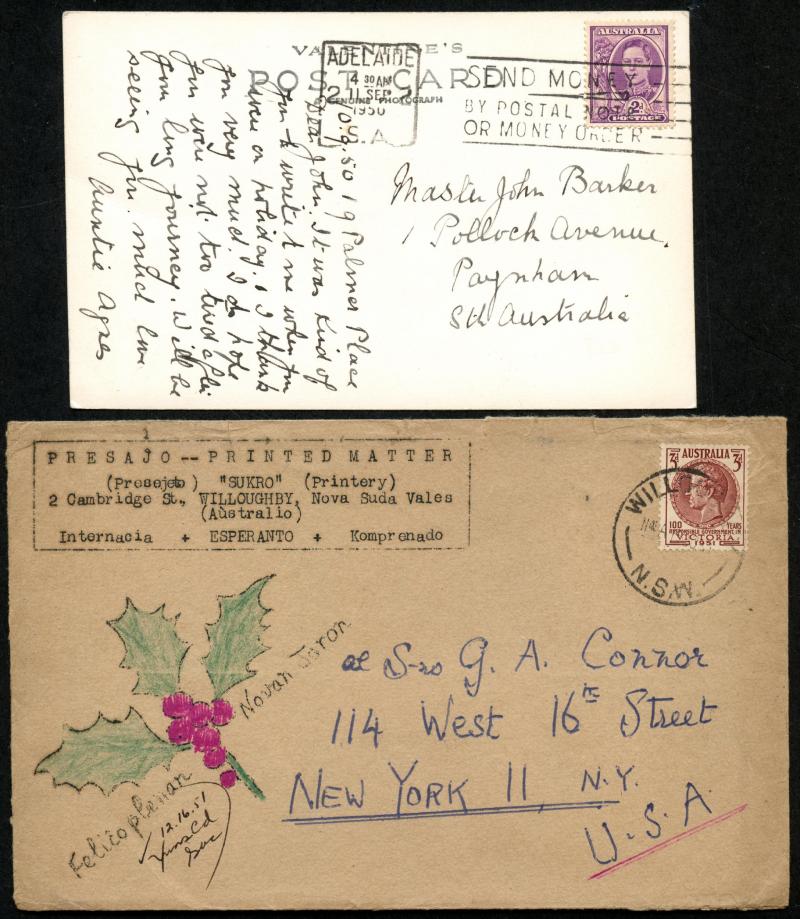 VALENTINE'S
POST CARD
GENUINE PHOTOGRAPH
ADELAIDE
4 30 AM
11 SEP
1950
S.A.
SEND MONEY
BY POSTAL NOTE
OR MONEY ORDER
AUSTRALIA
2D
POSTAGE
19 Palmer Place
Dear John. It was kind of
you to write to me when you
were on holiday. & I thank
you very much. I do hope
you were not too tired after
your long journey. Will be
seeing you. Much love
Auntie Agnes
Master John Barker
1 Pollock Avenue,
Paynham
Sth Australia
PRESAJO -- PRINTED MATTER
(Presejeto) "SUKRO" (Printery)
2 Cambridge St., WILLOUGHBY, Nova Suda Vales
(Aŭstralio)
Internacia + ESPERANTO + Komprenado
3d AUSTRALIA 3d
100 YEARS
RESPONSIBLE GOVERNMENT IN
VICTORIA
1951
N.S.W.
Novan Jaron
Feliĉoplenan
12.16.51
al S-ro G. A. Connor
114 West 16th Street
NEW YORK 11, N.Y.
U.S.A.